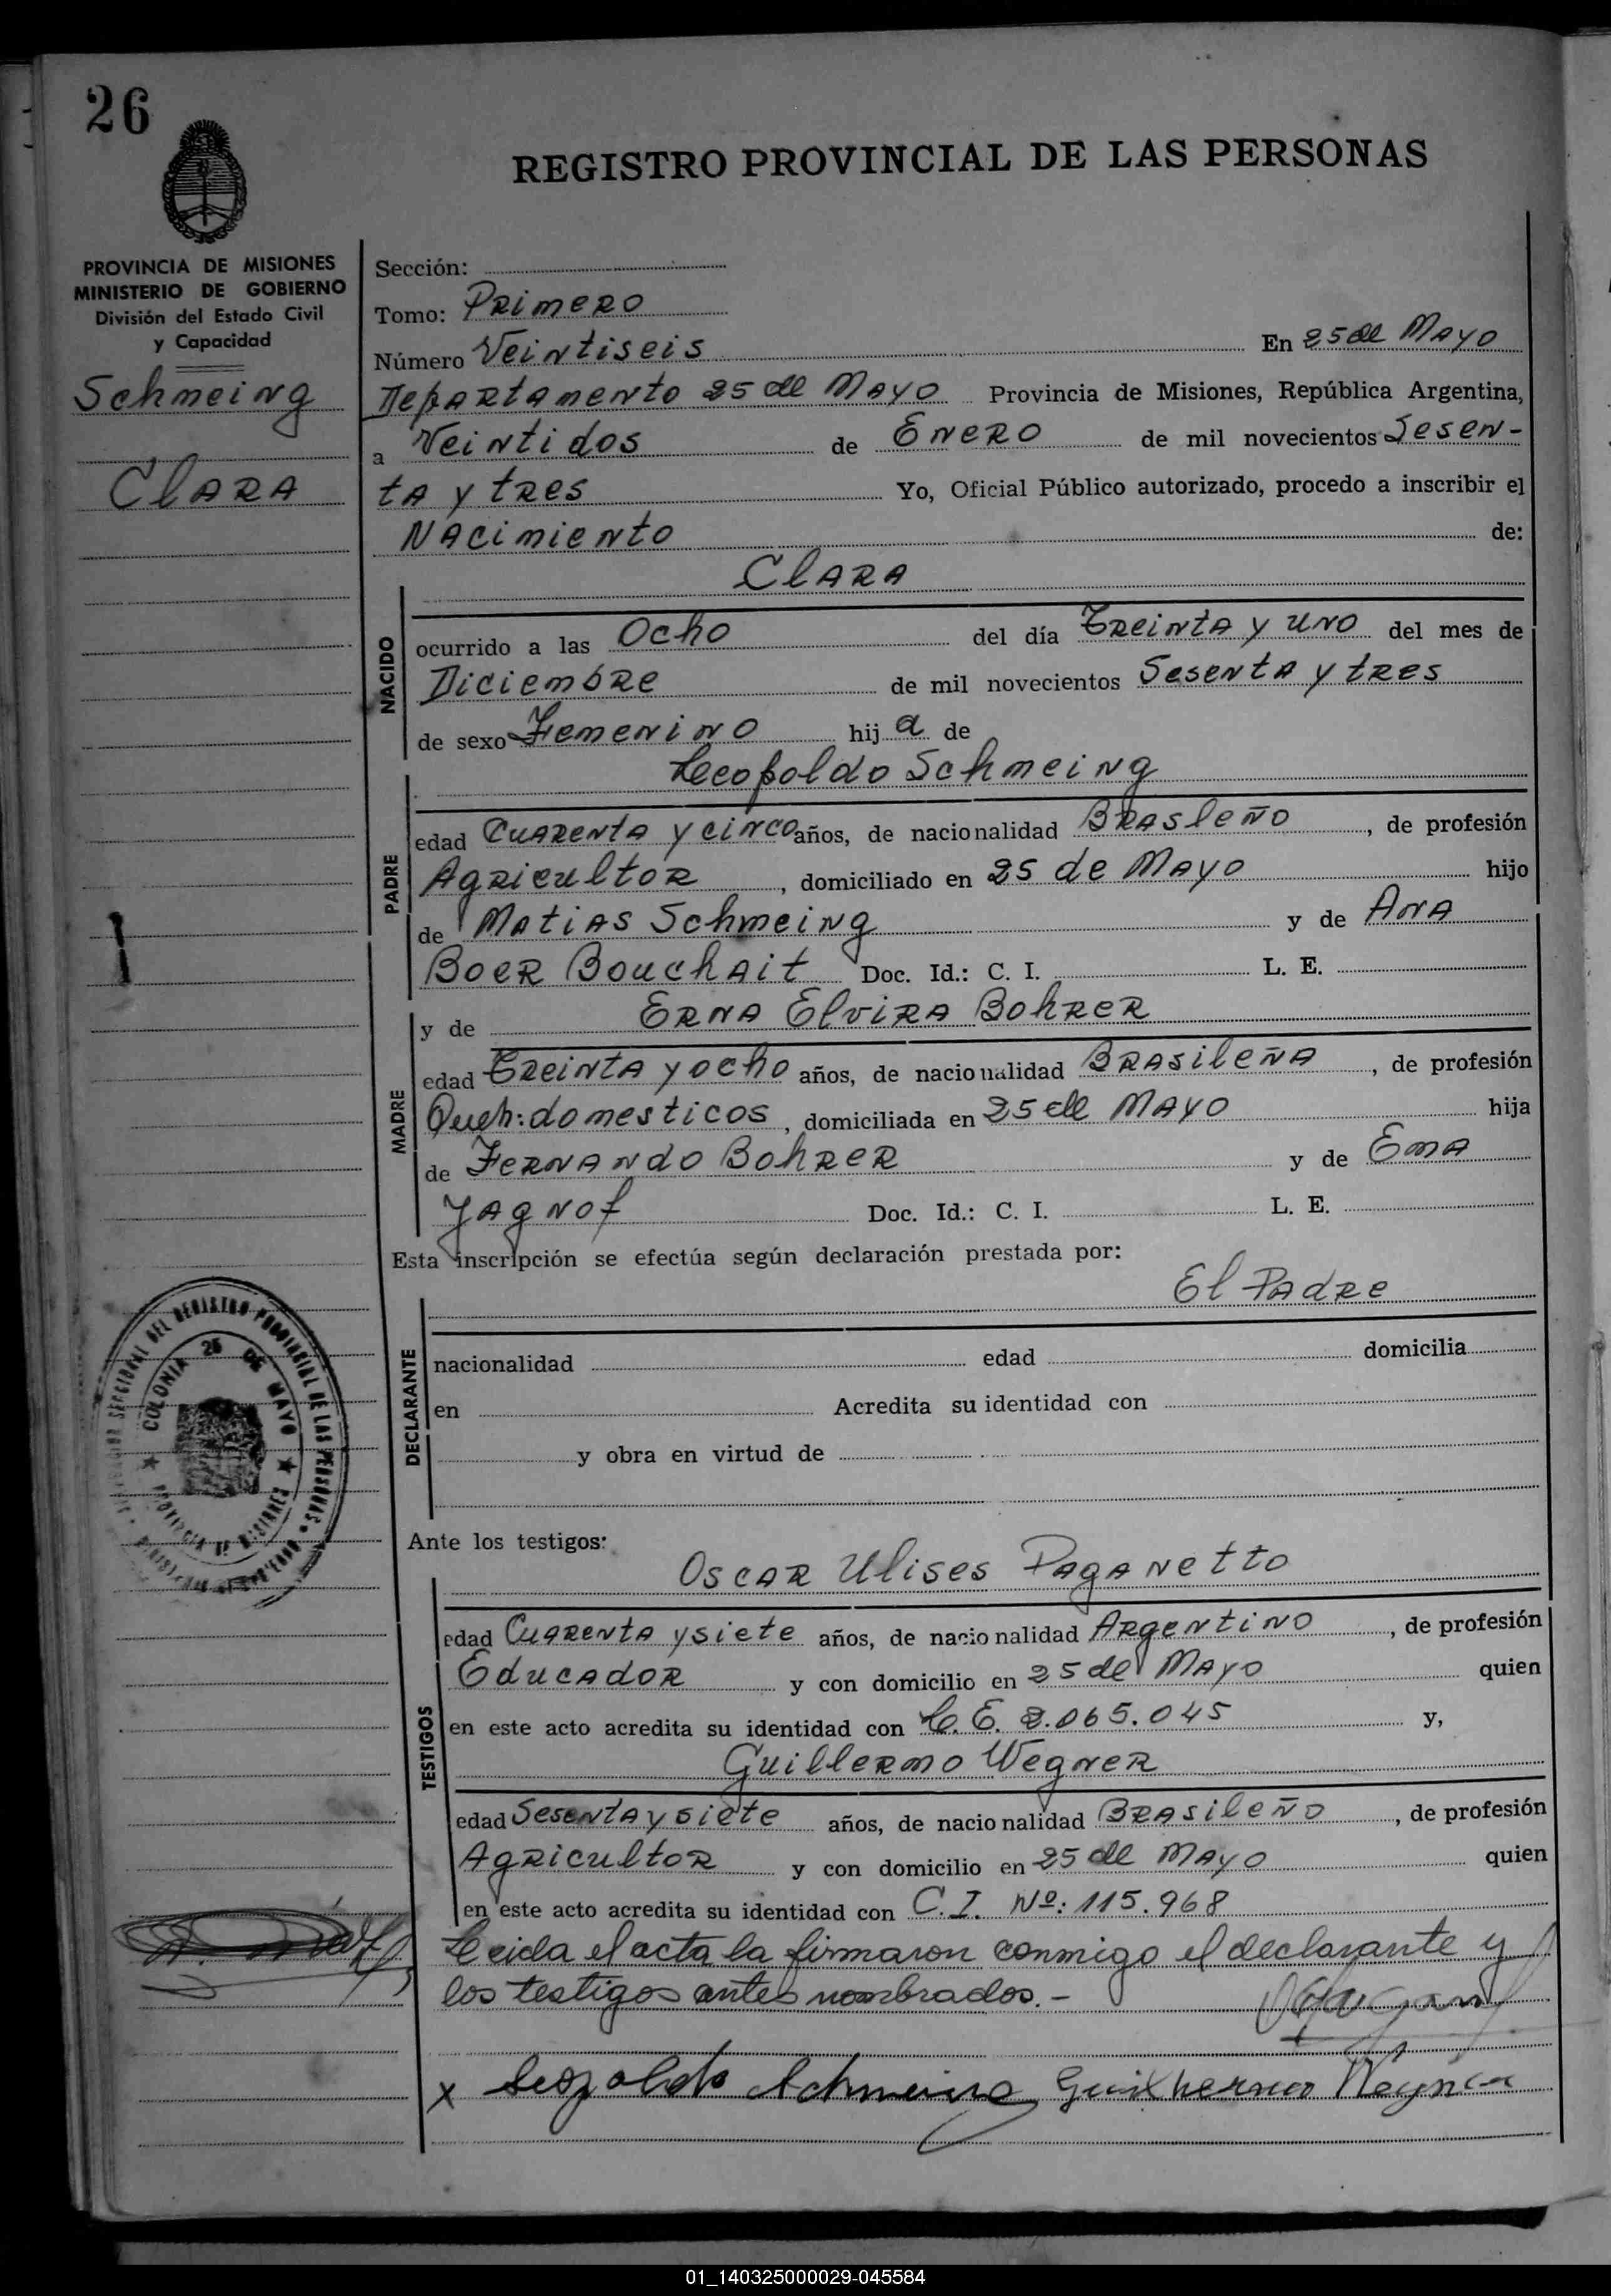 26
REGISTRO PROVINCIAL DE LAS PERSONAS
PROVINCIA DE MISIONES
MINISTERIO DE GOBIERNO
División del Estado Civil
y Capacidad
Schmeing
Clara
Sección:
Tomo: Primero
Número Veintiseis En 25 de Mayo
Departamento 25 de Mayo Provincia de Misiones, República Argentina,
a Veintidos de Enero de mil novecientos Sesen-
ta y tres Yo, Oficial Público autorizado, procedo a inscribir el
Nacimiento de:
Clara
NACIDO
ocurrido a las Ocho del día Treinta y uno del mes de
Diciembre de mil novecientos Sesenta y tres
de sexo Femenino hij a de
Leopoldo Schmeing
PADRE
edad Cuarenta y cinco años, de nacionalidad Brasleño, de profesión
Agricultor, domiciliado en 25 de Mayo hijo
de Matias Schmeing y de Ana
Boer Bouchait Doc. Id.: C. I. L. E.
y de Erna Elvira Bohrer
MADRE
edad Treinta y ocho años, de nacionalidad Brasileña, de profesión
Queh: domesticos, domiciliada en 25 de Mayo hija
de Fernando Bohrer y de Ema
Jagnof Doc. Id.: C. I. L. E.
Esta inscripción se efectúa según declaración prestada por:
El Padre
DECLARANTE
nacionalidad edad domicilia
en Acredita su identidad con
y obra en virtud de
COLONIA 25 DE MAYO
Ante los testigos:
Oscar Ulises Paganetto
TESTIGOS
edad Cuarenta y siete años, de nacionalidad Argentino, de profesión
Educador y con domicilio en 25 de Mayo quien
en este acto acredita su identidad con L. E. 2.065.045 y,
Guillermo Wegner
edad Sesenta y siete años, de nacionalidad Brasileño, de profesión
Agricultor y con domicilio en 25 de Mayo quien
en este acto acredita su identidad con C. I. Nº: 115.968
Leida el acta la firmaron conmigo el declarante y
los testigos antes nombrados.-
x Leopoldo Schmeing Guilhermo Wegner
01_140325000029-045584